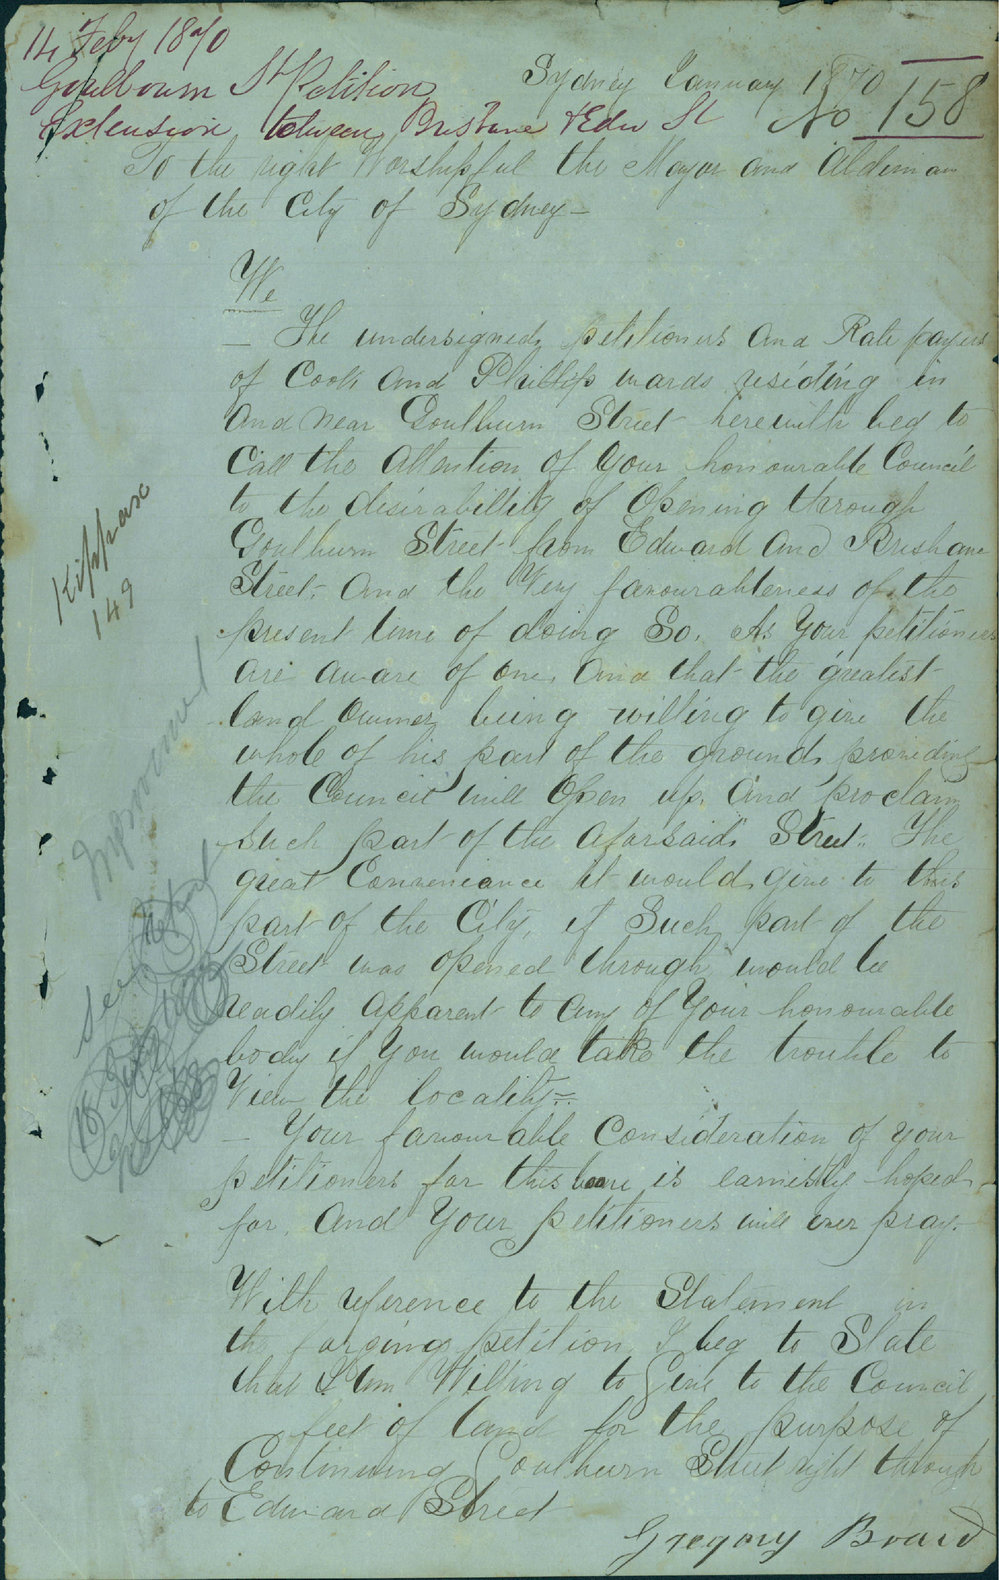 14 Feby 1870
Goulbourn St Petition
Extension, between Brisbane & Edw St
Sydney January 1870
No 158
To the right Worshipful the Mayor and Aldermen
of the City of Sydney -
We
- The undersigned, petitioners and Rate payers
of Cook and Phillip wards residing in
and near Goulburn Street herewith beg to
Call the Attention of Your honourable Council
to the desirability of Opening through
Goulburn Street from Edward and Brisbane
Street. And the Very favourableness of the
present time of doing So. As Your petitioners
are aware of one, and that the greatest
land Owner, being willing to give the
whole of his part of the ground, providing
the Council will Open up, and proclaim
such part of the aforsaid Street. The
great Conveniance it would give to this
part of the City, if Such part of the
Street was opened through, would be
readily apparent to any of Your honourable
body if You would take the trouble to
View the locality =
- Your favourable Consideration of your
petitioners for this is earnestly hoped
for. And Your petitioners will ever pray.
With reference to the Statement in
the forgoing petition I beg to State
that I am Willing to Give to the Council
feet of land for the purpose of
Continuing Goulburn Street right through
to Edward Street
Gregory Board
Kippax
149
see Report